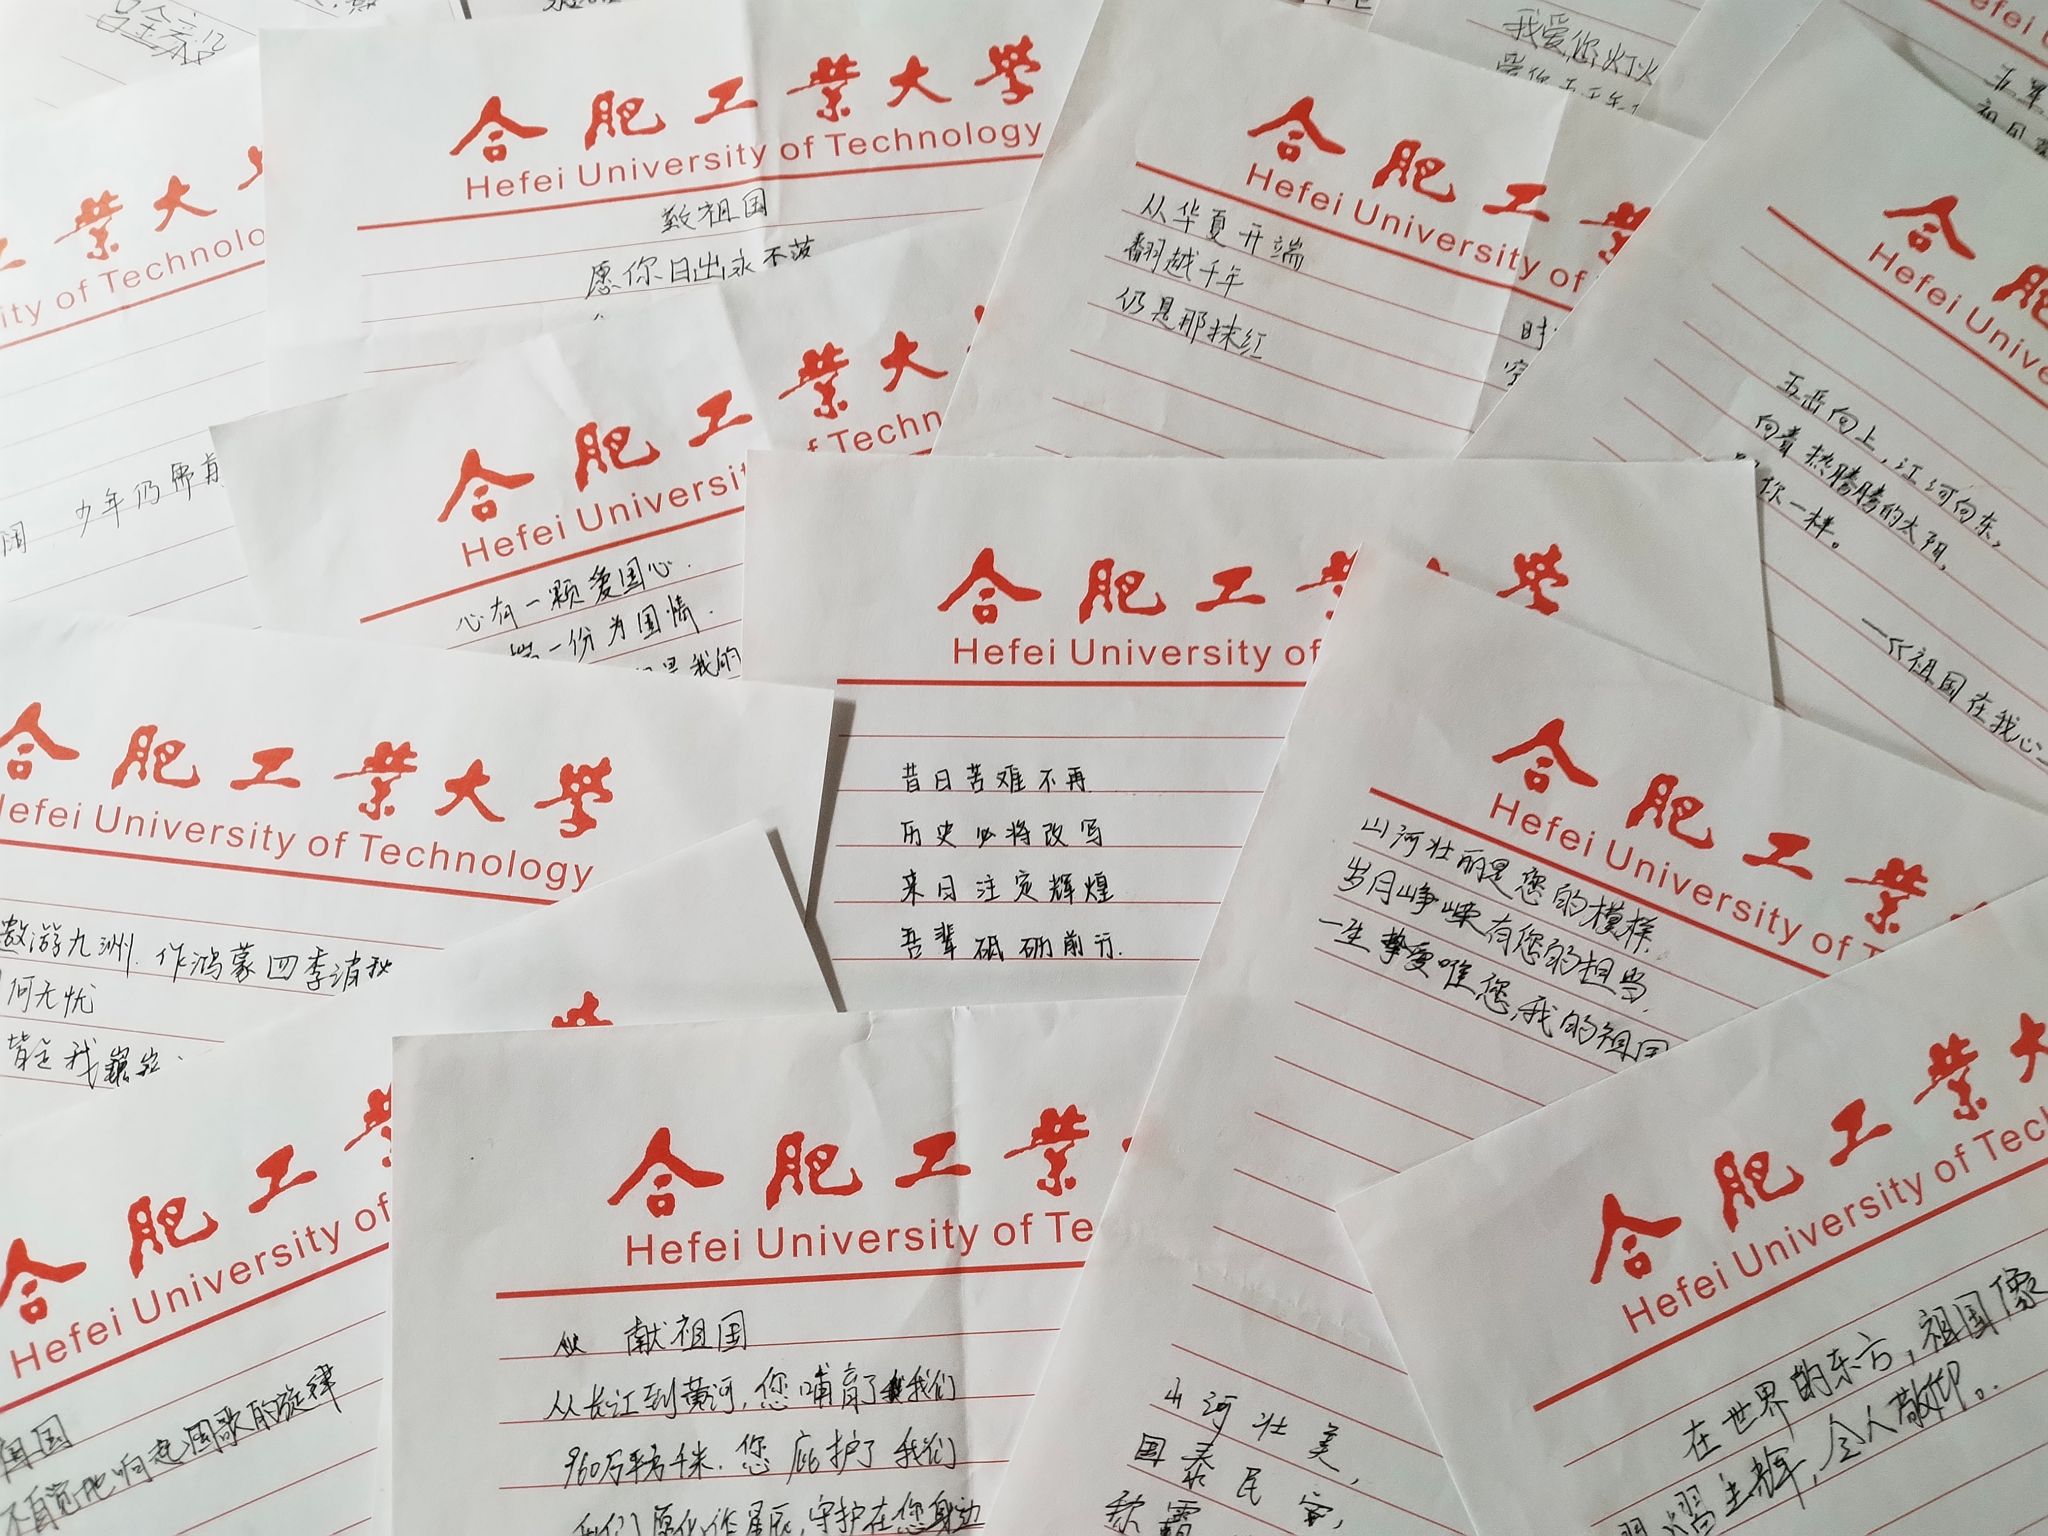 我爱您灯火
合肥工业大学
Hefei University of Technology
致祖国
愿你日出永不落
合肥工業
Hefei University of
从华夏开端
翻越千年
仍是那抹红
合肥
Hefei Unive
五岳向上,江河向东,
向着热腾腾的太阳,
你一样。
一个祖国在我心
工業大
ity of Technolo
少年仍需
合肥工業大
Hefei Universi
f Techn
心有一颗爱国心.
一份为国情.
是我的
合肥工業大學
Hefei University of
昔日苦难不再
历史必将改写
来日注定辉煌
吾辈砥砺前行.
合肥工業
Hefei University of T
山河壮丽是您的模样.
岁月峥嵘有您的担当.
一生挚爱唯您,我的祖国
合肥工業大學
Hefei University of Technology
遨游九洲.作鸿蒙四季
何无忧
皆是我
合肥工業
Hefei University of
国
不自觉地响起国歌的旋律
合肥工業
Hefei University of Te
献祖国
从长江到黄河,您哺育了我们
960万平方千米.您庇护了我们
我们愿化作星辰,守护在您身边
山河壮美,
国泰民安,
合肥工業大
Hefei University of Tec
在世界的东方,祖国像
令人敬仰。